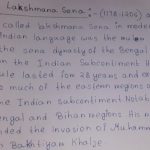 Lakshmana Sena :- (1178-1206) a
called Lakshmana Sen in modern
Indian language was the ruler
the sena dynasty of the Bengal
on the Indian Subcontinent H
rule lasted for 28 years and e
much of the eastern regions o
the Indian Subcontinent. Notab
Bengal and Bihar regions. His n
ended the invasion of Muhamm
Bakhtiyar Khalje.